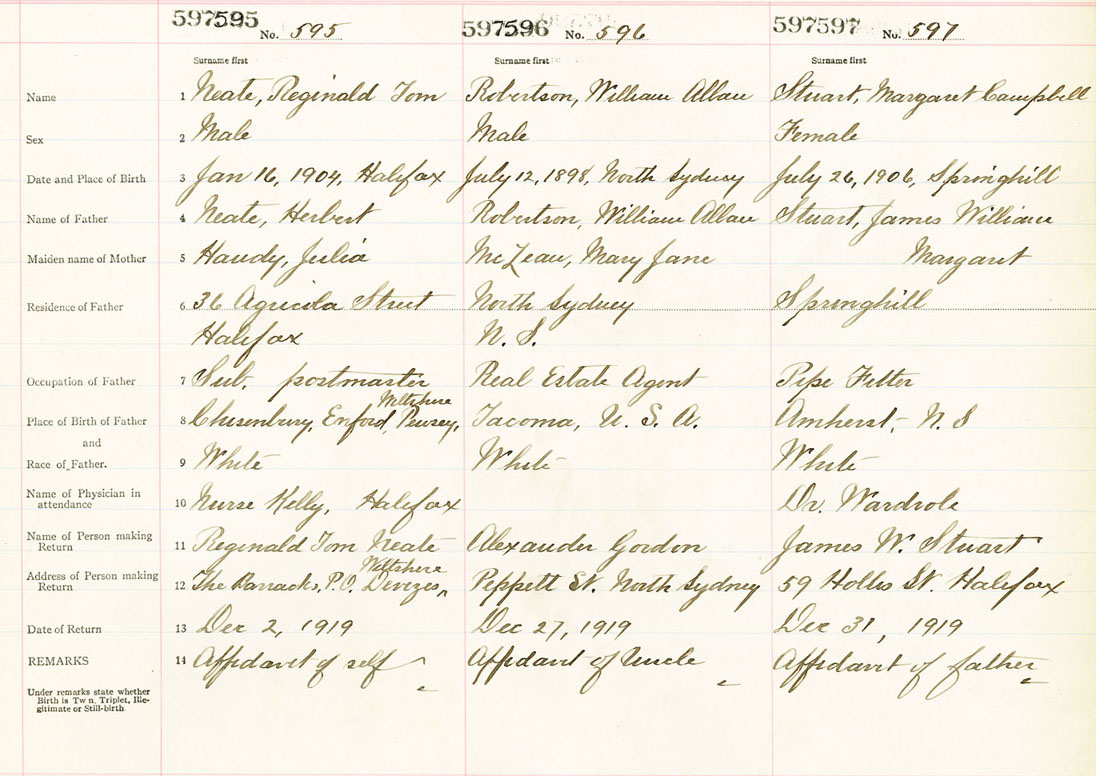 597595 No. 595 597596 No. 596 597597 No. 597
Surname first Surname first Surname first
Name 1 Neate, Reginald Tom Robertson, William Allan Stuart, Margaret Campbell
Sex 2 Male Male Female
Date and Place of Birth 3 Jan 16, 1904, Halifax July 12, 1898, North Sydney July 26, 1906, Springhill
Name of Father 4 Neate, Herbert Robertson, William Allan Stuart, James William
Maiden name of Mother 5 Handy, Julia McLean, Mary Jane Margaret
Residence of Father 6 36 Agricola Street North Sydney Springhill
Halifax N. S.
Occupation of Father 7 Sub. postmaster Real Estate Agent Pipe Fitter
Wiltshire
Place of Birth of Father 8 Chisenbury, Enford, Pewsey, Tacoma, U. S. A. Amherst, N. S
and
Race of Father. 9 White White White
Name of Physician in
attendance 10 Nurse Kelly, Halifax Dr. Wardrole
Name of Person making
Return 11 Reginald Tom Neate Alexander Gordon James W. Stuart
Wiltshire
Address of Person making
Return 12 The Barracks, P.O. Devizes, Peppett St. North Sydney 59 Hollis St. Halifax
Date of Return 13 Dec 2, 1919 Dec 27, 1919 Dec 31, 1919
REMARKS 14 Affidavit of self Affidavit of Uncle Affidavit of father
Under remarks state whether
Birth is Tw n, Triplet, Ille-
gitimate or Still-birth